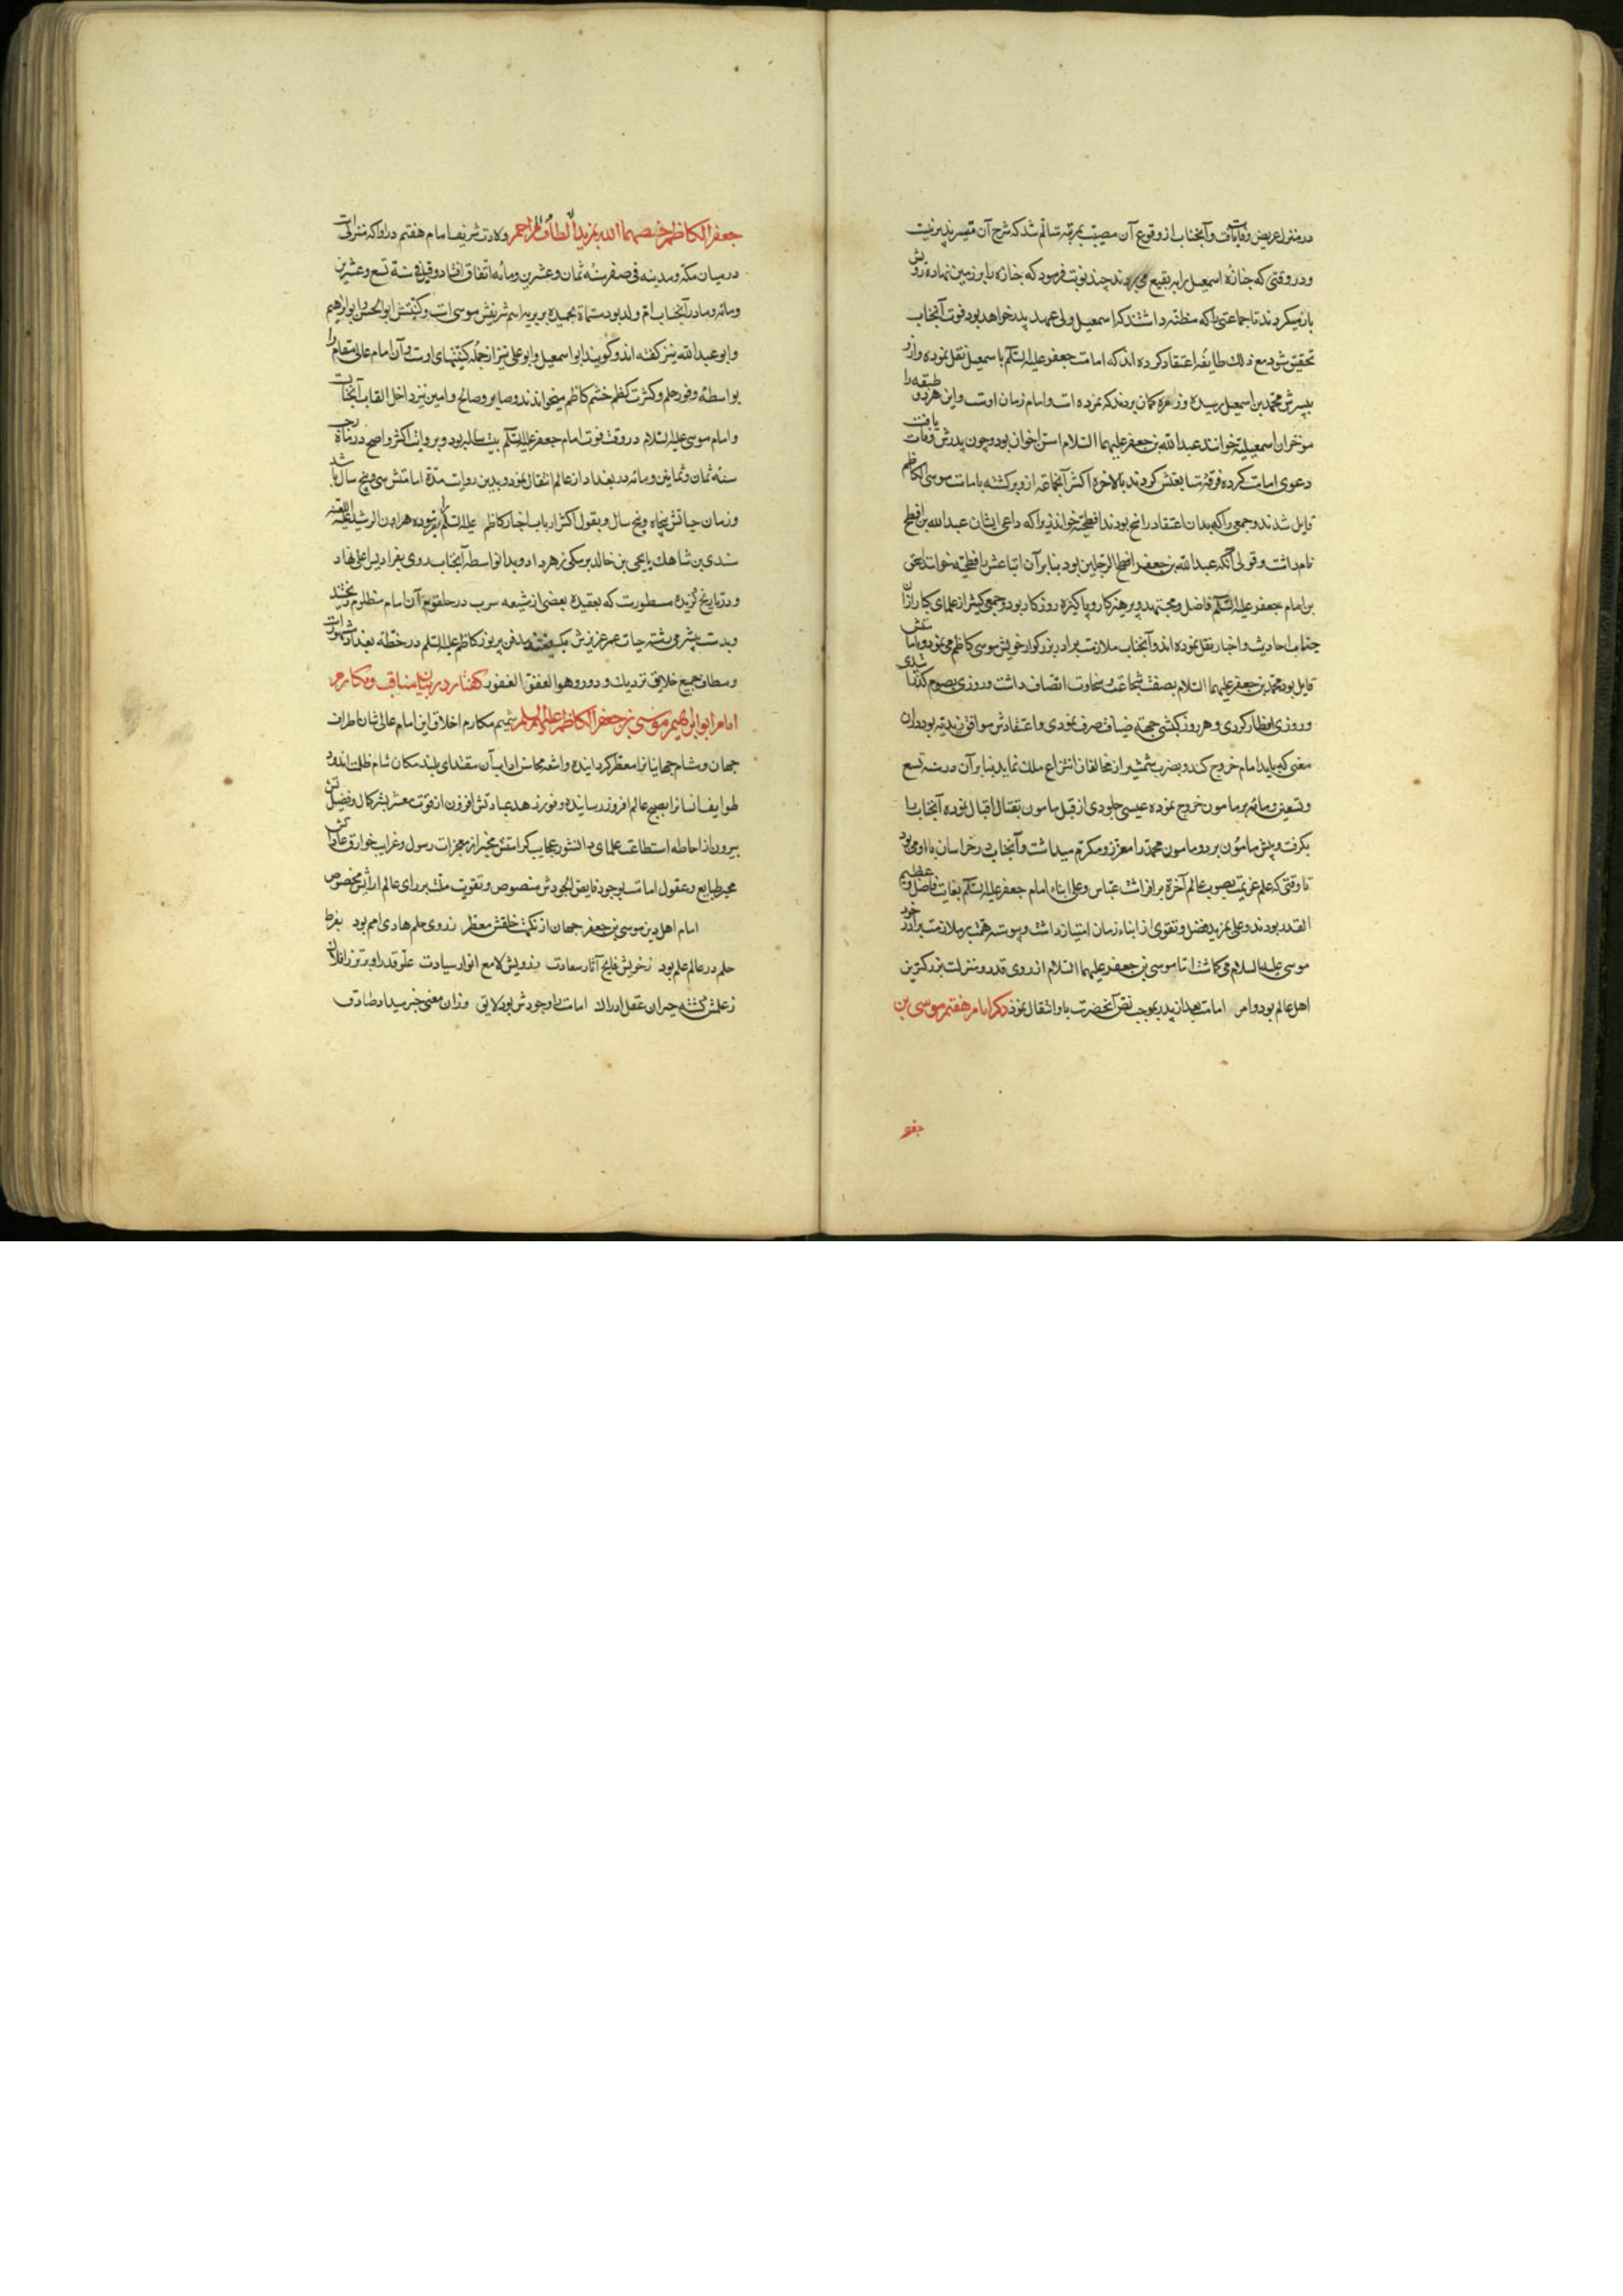 در منزل عریض وفات یافت و آنجناب از وقوع آن مصیبت بمرتبه متالم شد که شرح آن میسر پذیر نیست
و در وقتی که جنازه اسمعیل را به بقیع می بردند چند نوبت فرمود که جنازه را بر زمین نهاده رویش
باز میکردند تا جماعتی را که مظنه داشتند که اسمعیل ولی عهد پدر خواهد بود فوت آنجناب
تحقیق شود مع ذلک طایفه اعتقاد کرده اند که امامت جعفر علیه السلم با سمعیل نقل نموده و ازو
بپسرش محمد بن اسمعیل رسیده و زمره کمان بردند که نمرده است و امام زمان اوست و این هر دو طبقه را
موخران اسمعیلیه خوانند عبد الله بن جعفر علیهما السلام اسن اخوان بود و چون پدرش وفات یافت
دعوی امامت کرده فرقهٔ متابعتش کردند بالاخره اکثر آنجماعة ازو برکشته بامامت موسی الکاظم
قایل شدند و جمعی را که بدان اعتقاد راسخ بودند افطحیه خوانند زیرا که داعی ایشان عبد الله بن افطح
نام داشت و قولی آنکه عبد الله بن جعفر افطح الرجلین بود بنا بر آن اتباعش را فطحیه خوانند اسحق
بن امام جعفر علیه السلم فاضل و مجتهد و پرهیزکار و پاکیزه روزکار بود و جمعی کثیر از علمای کبار ازان
جناب احادیث و اخبار نقل نموده اند و آنجناب ملازمت برادر بزرکوار خویش موسی کاظم می نمود و بامامتش
قایل بود محمد بن جعفر علیهما السلام بصفت شجاعت و سخاوت اتصاف داشت و روزی بصوم کذرانیدی
و روزی افطار کردی و هر روز کبشی جهة ضیافت صرف نمودی و اعتقادش موافق زیدیه بود در آن
معنی که باید امام خروج کند و بضرب شمشیر از مخالفان انتزاع ملک نماید بنابرآن در سنه تسع
و تسعین و مائه بر مامون خروج نموده عیسی جلودی از قبل مامون بقتال اقبال نموده آنجناب را
بکرفت و پیش مامون برد و مامون محمد را معزز و مکرم میداشت و آنجناب در خراسان با او می بود
تا وقتی که علم عزیمت بصوب عالم آخرة برافراشت عباس و علی ابناء امام جعفر علیه السلم بغایت فاضل و عظیم
القدر بودند و علی بمزید فضل و تقوی از ابناء زمان امتیاز داشت و پیوسته همت بر ملازمت برادر خود
موسی علیه السلام می کماشت اما موسی بن جعفر علیهما السلام از روی قدر و منزلت بزرکترین
اهل عالم بود و امر امامت بعد از پدر بموجب نص آنحضرت باو انتقال نمود ذکر امام هفتم موسی بن
جعفر
جعفر الکاظم خصهما الله بمزید الطاف المراحم ولادت شریف امام هفتم در ابوا که منزلی است
در میان مکه و مدینه فی صفر سنه ثمان و عشرین و مائه اتفاق افتاد و قیل فی سنة تسع و عشرین
و مائه و مادر آنجناب ام ولد بود مسماة بحمیده بربریه اسم شریفش موسی است و کنیتش ابو الحسن و ابو ابرهیم
و ابو عبد الله نیز کفته اند و کویند ابو اسمعیل و ابو علی نیز از جمله کنیتهای اوست و آن امام عالی مقام را
بواسطه وفور حلم و کثرت کظم خشم کاظم میخوانند و صابر و صالح و امین نیز داخل القاب آنجناب است
و امام موسی علیه السلام در وقت فوت امام جعفر علیه السلم بیست ساله بود و بروایت اکثر و اصح در رجب
سنه ثمان و ثمانین و مائه در بغداد از عالم انتقال نمود و بدین روایت مدة امامتش سی و پنج سال باشد
و زمان حیاتش پنجاه و پنج سال و بقول اکثر ارباب اخبار کاظم علیه السلم را بفرموده هارون الرشید علیه اللعنه
سندی بن شاهک یا یحیی بن خالد برمکی زهر داد و بدانواسطه آنجناب روی بفرادیس اعلی نهاد
و در تاریخ کزیده مسطورست که بعقیده بعضی از شیعه سرب در حلقوم آن امام مظلوم ریختند
و بدست رشته حیات عمر عزیزش مدفن پرنور کاظم علیه السلم در خطه بغداد مشهورست
و مطاف جمیع خلایق نزدیک و دور و هو العفو الغفور کفتار در بیان مناقب و مکارم
امام ابو ابرهیم موسی بن جعفر الکاظم علیهم السلم شمیم مکارم اخلاق این امام عالی شان اطراف
جهان و مشام جهانیانرا معطر کردانیده و اشعه محاسن اداب آن مقتدای بلند مکان شام ظلمت اندود
طوایف انسانرا بصبح عالم افروز رسانیده وفور زهد عبادتش افزون از قوت معشر بشر کمال و فضیلتش
بیرون از احاطه استطاعت علمای دانشور عجایب کراماتش مخبر از معجزات رسول و غرایب خوارق عاداتش
محیر طبایع و عقول امامت بوجود فایض الجودش منصوص و تقویت ملت برای عالم ارایش مخصوص
امام اهل دین موسی بن جعفر جهان از نکهت خلقش معطر ز روی حلم هادی امم بود بفرط
حلم در عالم علم بود ز خویش فایح آثار سعادت ز رویش لامع انوار سیادت علو قدر او برتر ز افلاک
ز علمش کشته حیران عقل ادراک امامت را وجودش بود لایق وزان معنی خبر میداد صادق